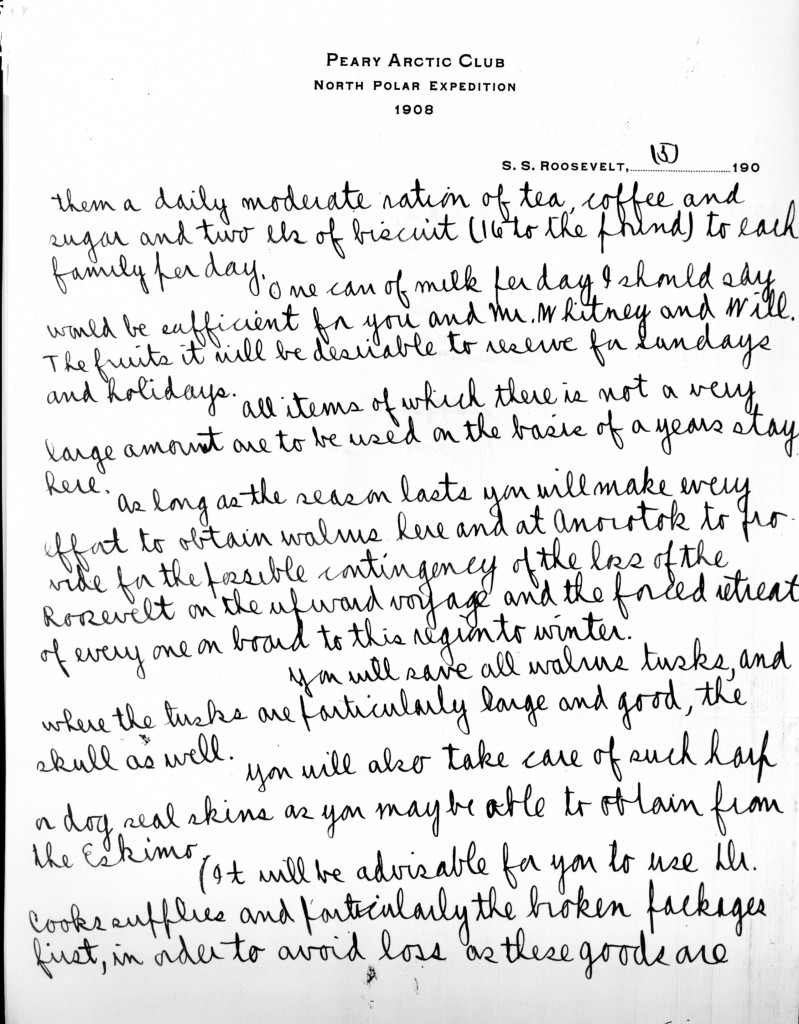 PEARY ARCTIC CLUB
NORTH POLAR EXPEDITION
1908
S. S. ROOSEVELT, (5) 190
them a daily moderate ration of tea, coffee and
sugar and two lbs of biscuit (16 to the pound) to each
family per day.
One can of milk per day I should say
would be sufficient for you and Mr. Whitney and Will.
The fruits it will be desirable to reserve for Sundays
and holidays.
All items of which there is not a very
large amount are to be used on the basis of a years stay
here.
As long as the season lasts you will make every
effort to obtain walrus here and at Anorotok to pro-
vide for the possible contingency of the loss of the
Roosevelt on the upward voyage and the forced retreat
of every one on board to this region to winter.
You will save all walrus tusks, and
where the tusks are particularly large and good, the
skull as well.
You will also take care of such harp
or dog seal skins as you may be able to obtain from
the Eskimo.
(It will be advisable for you to use Dr.
Cooks supplies and particularly the broken packages
first, in order to avoid loss as these goods are